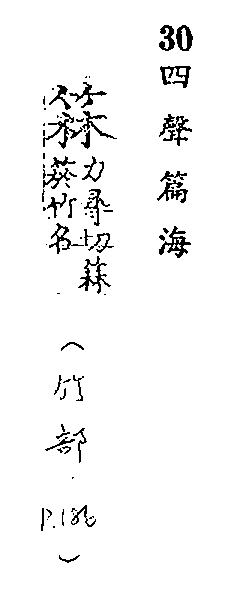 30四聲篇海
箖力尋切箖
箊竹名
(竹部.
P.186)